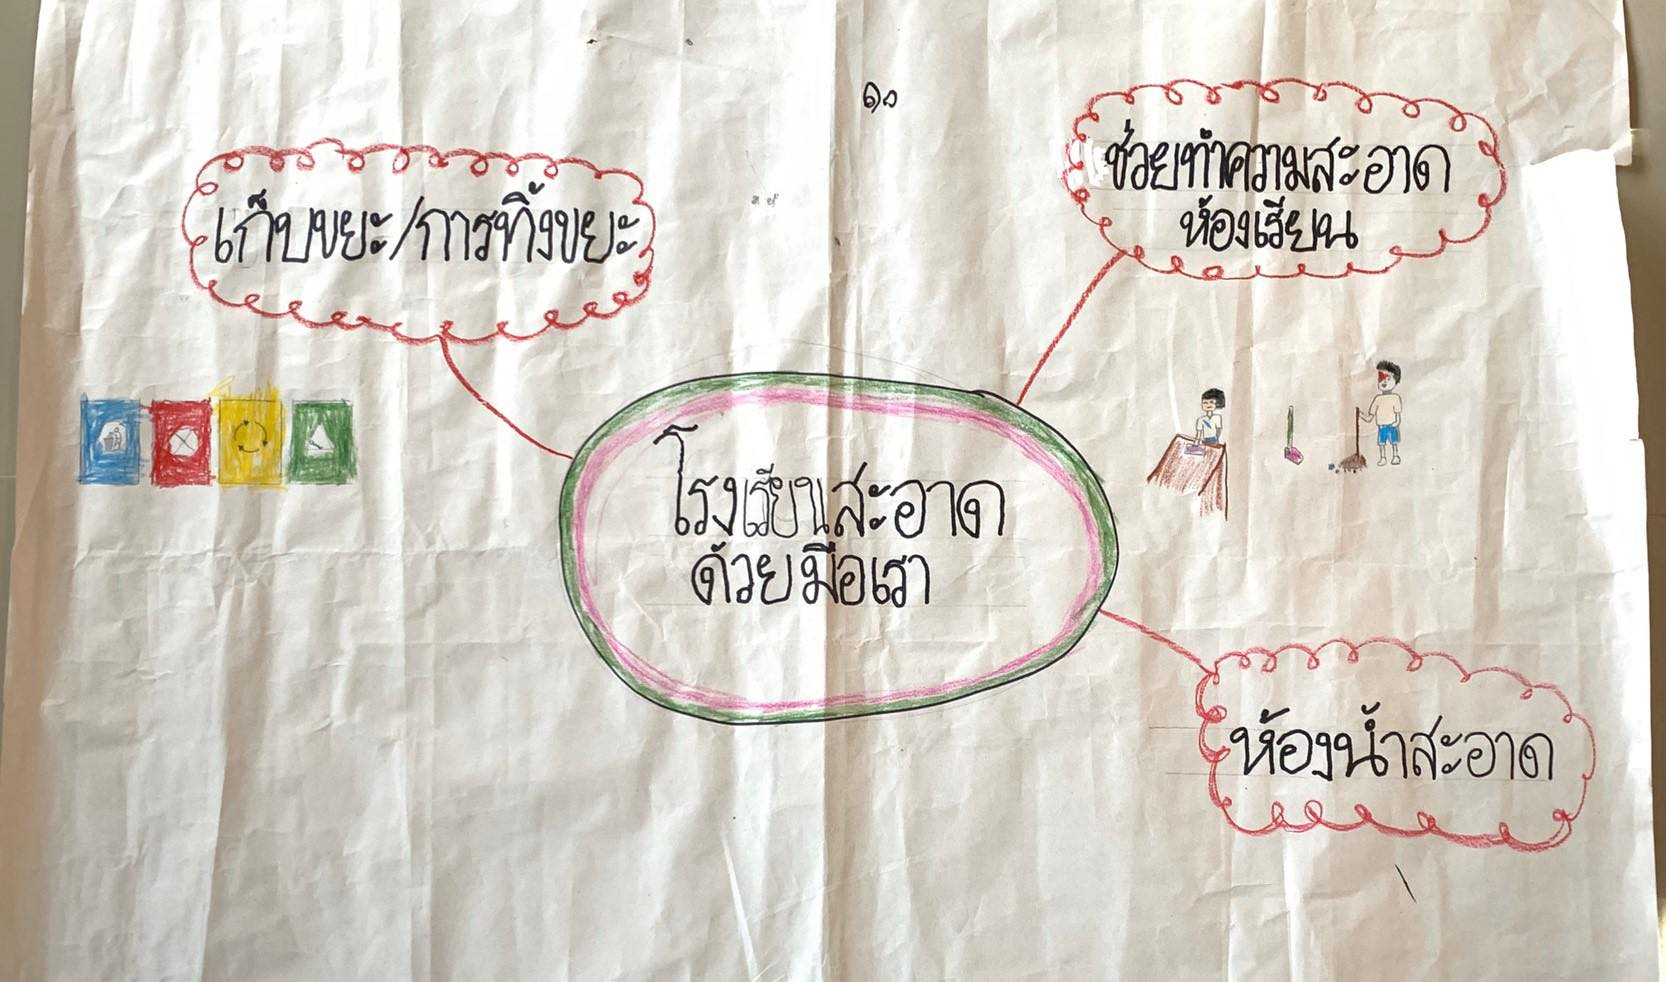 ๑๐
เก็บขยะ/การทิ้งขยะ
ช่วยทำความสะอาด
ห้องเรียน
โรงเรียนสะอาด
ด้วยมือเรา
ห้องน้ำสะอาด